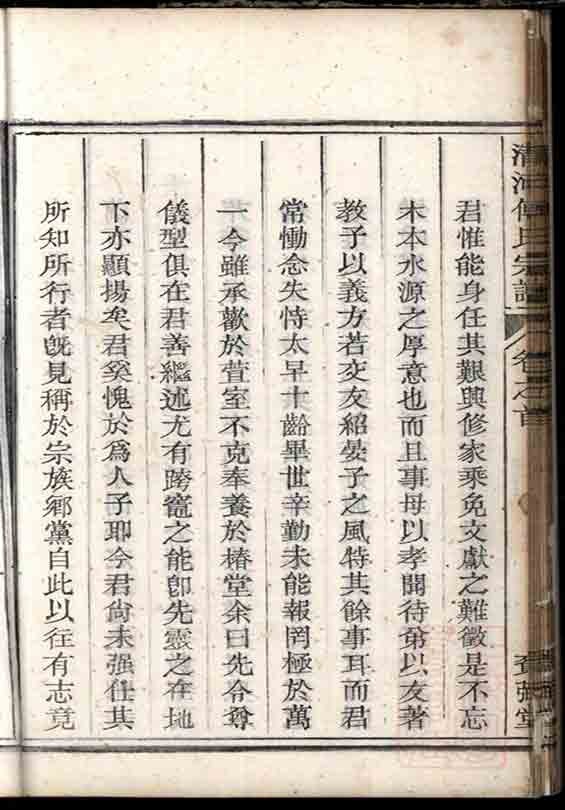 清河傅氏宗譜 卷之首
君惟能身任其艱興修家乘免文獻之難徵是不忘
木本水源之厚意也而且事母以孝聞待弟以友著
教子以義方若交友紹晏子之風特其餘事耳而君
常慟念失恃太早十齡畢世辛勤未能報罔極於萬
一今雖承歡於萱室不克奉養於椿堂余曰先令尊
儀型俱在君善繼述尤有跨竈之能卽先靈之在地
下亦顯揚矣君奚愧於爲人子耶今君尙未强仕其
所知所行者旣見稱於宗族鄉黨自此以往有志竟